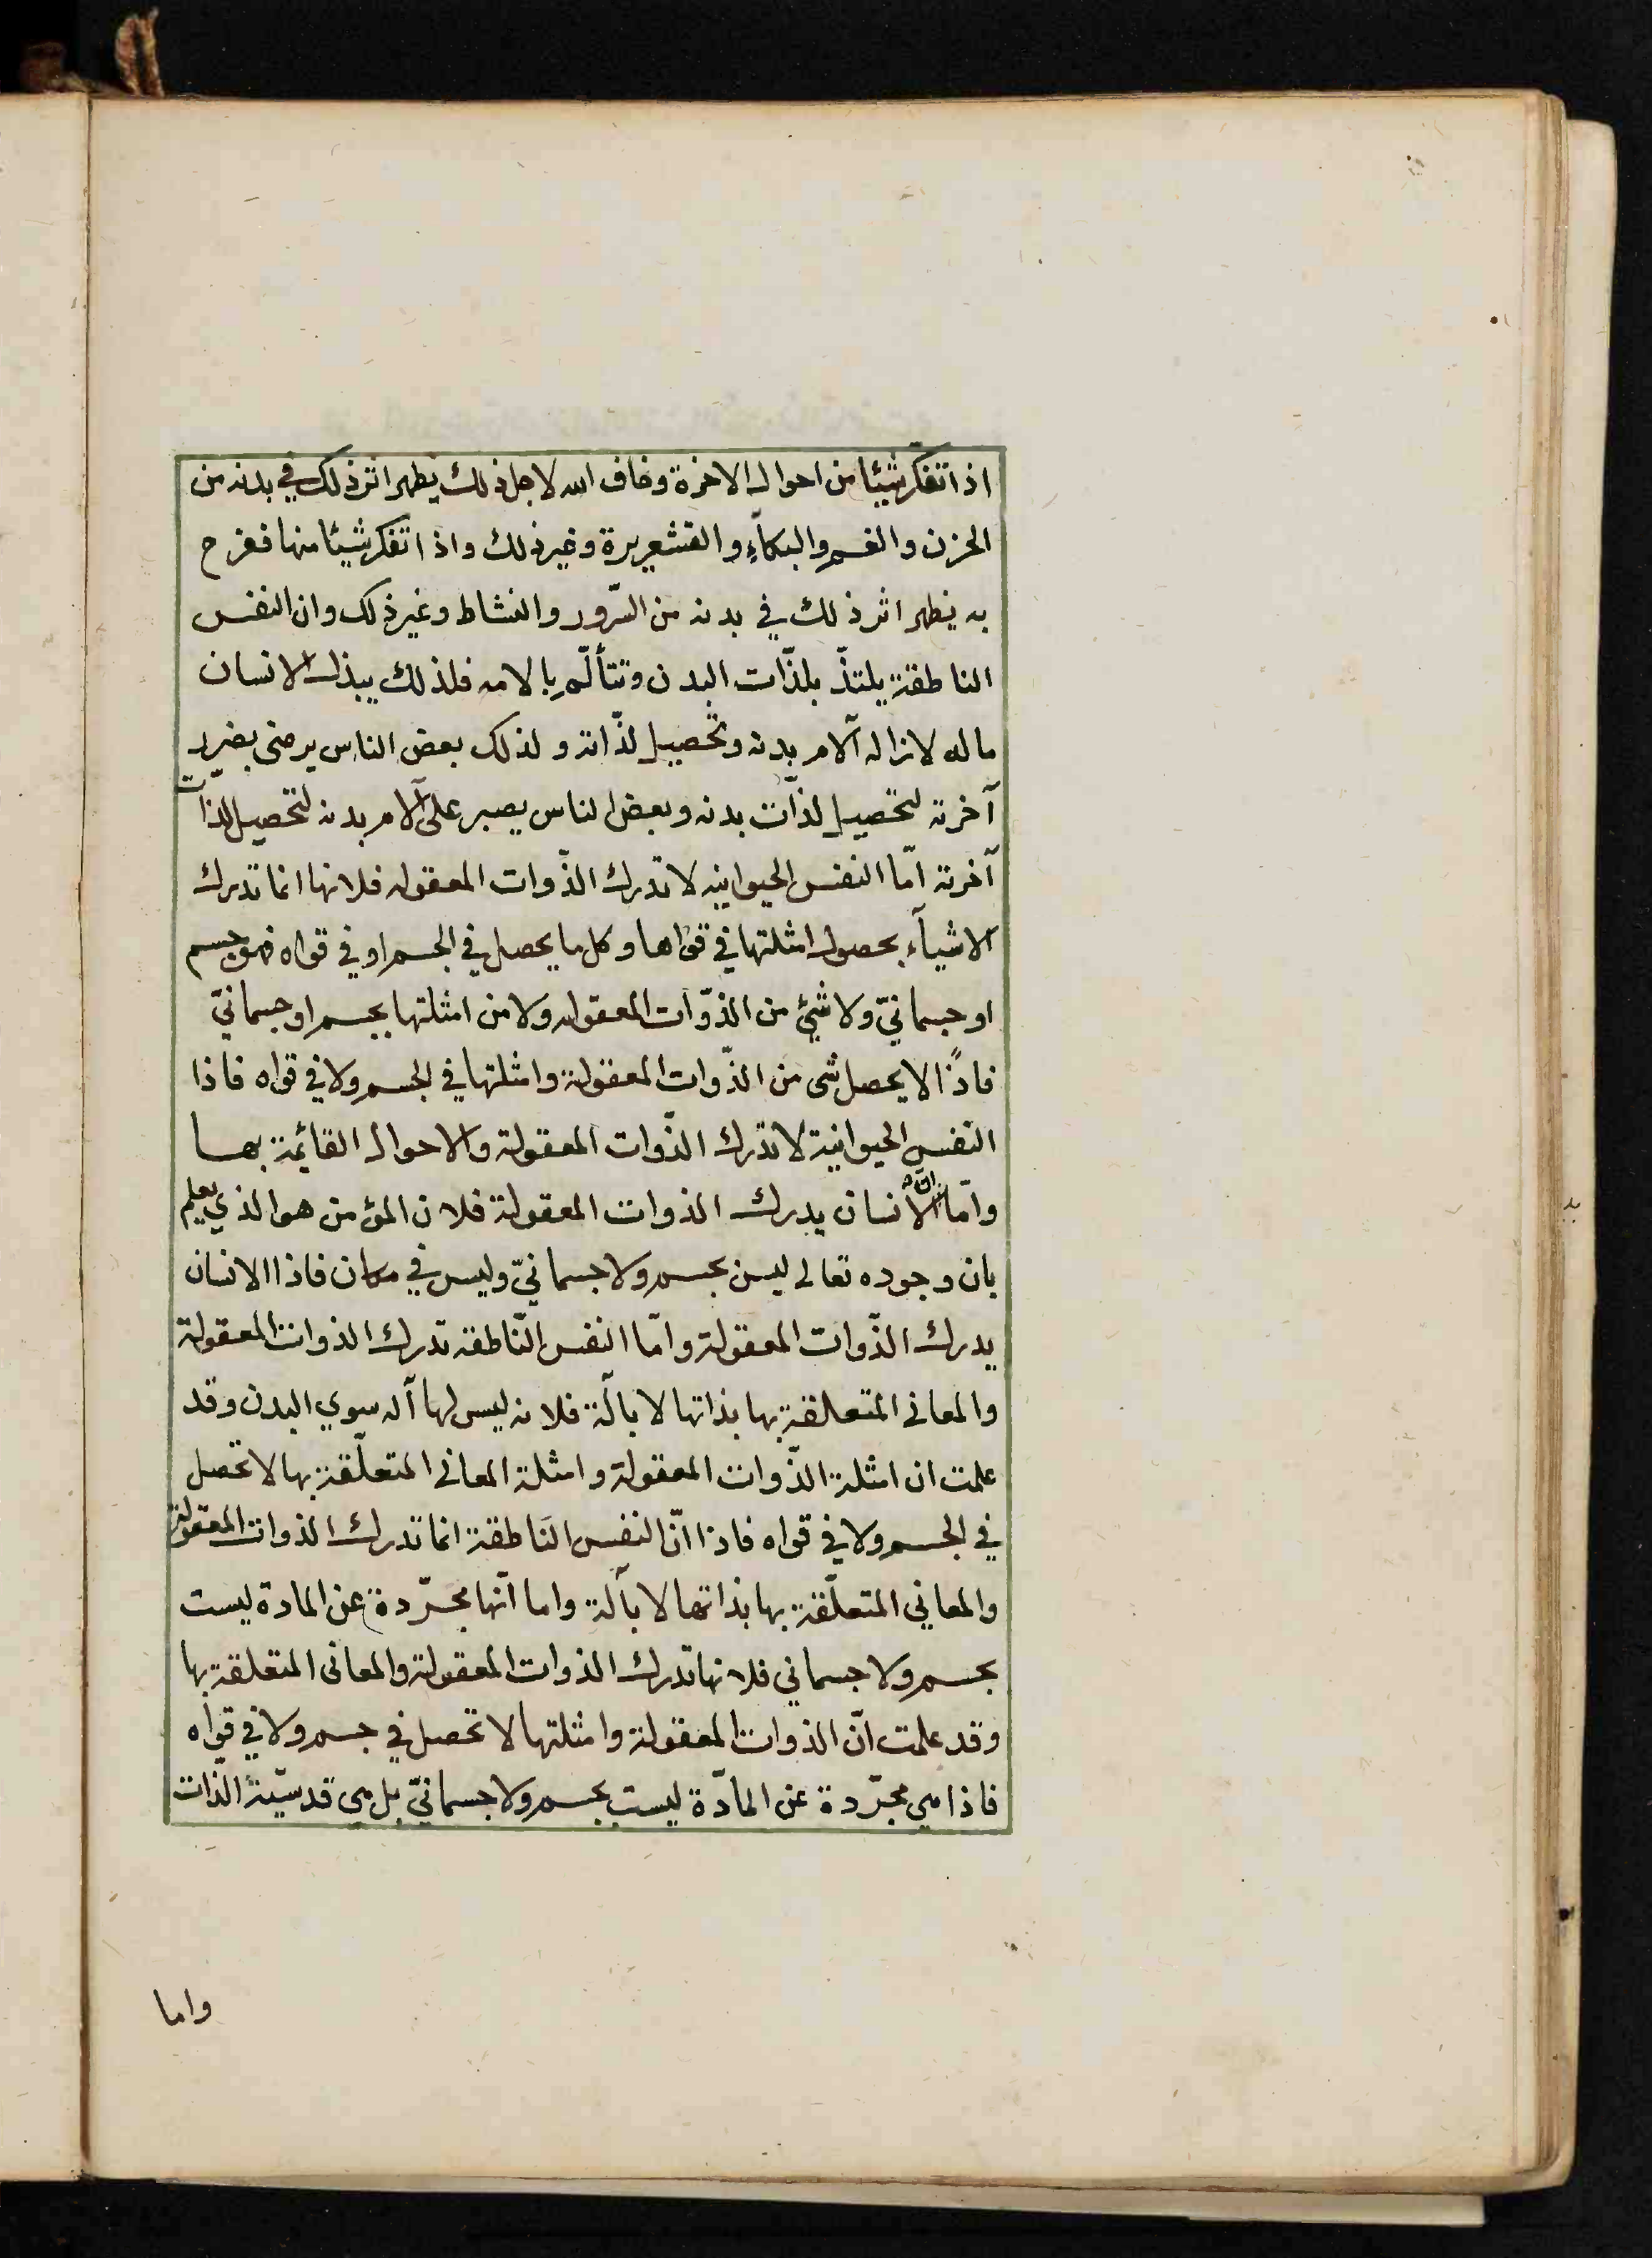 اذا تفكر شيئا من احوال الاخرة وخاف الله لاجل ذلك يظهر اثر ذلك في بدنه من
الحزن والغم والبكاءِ والقشعريرة وغير ذلك واذا تفكر شيئا منها ففرح
به يظهر اثر ذلك في بدنه من السّرور والنشاط وغير ذلك وان النفس
الناطقة يلتذّ بلذّات البدن وتتألّم بالامه فلذلك يبذل الانسان
ماله لازاله آلام بدنه وتحصيل لذّاته ولذلك بعض الناس يرضى بضرر
آخرته لتحصيل لذّات بدنه وبعض الناس يصبر على آلام بدنه لتحصيل لذّات
آخرته امّا النفس الحيوانيه لا تدرك الذّوات المعقوله فلانها انما تدرك
الاشيآء بحصول امثلتها في قواها وكل ما يحصل في الجسم او في قواه فهو جسم
او جسمانيّ ولا شئ من الذوّات المعقوله ولا من امثلتها بجسم او جسمانيّ
فاذًا لا يحصل شى من الذّوات المعقولة وامثلتها في الجسم ولا في قواه فاذا
النفس الحيوانية لا تدرك الذّوات المعقولة والاحوال القائمة بها
وامّا انّ الانسان يدرك الذوات المعقولة فلان المؤمن هو الذي يعلم
بان وجوده تعالى ليس بجسم ولا جسمانيّ وليس في مكان فاذا الانسان
يدرك الذّوات المعقولة وامّا النفس النّاطقه تدرك الذوات المعقولة
والمعانى المتعلقة بها بذاتها لا بآلة فلانه ليس لها آله سوي البدن وقد
علمت ان امثلة الذّوات المعقولة وامثلة المعانى المتعلّقة بها لا تحصل
في الجسم ولا في قواه فاذا انّ النفس الناطقة انما تدرك الذوات المعقولة
والمعاني المتعلّقة بها بذاتها لا بآلة واما انّها مجرّدة عن المادة ليست
بجسم ولا جسماني فلانها تدرك الذوات المعقولة والمعانى المتعلقة بها
وقد علمت انّ الذوات المعقولة وامثلتها لا تحصل في جسم ولا في قواه
فاذا هي مجرّدة عن المادّة ليست بجسم ولا جسمانيّ بل هى قدسيّة الذات
واما